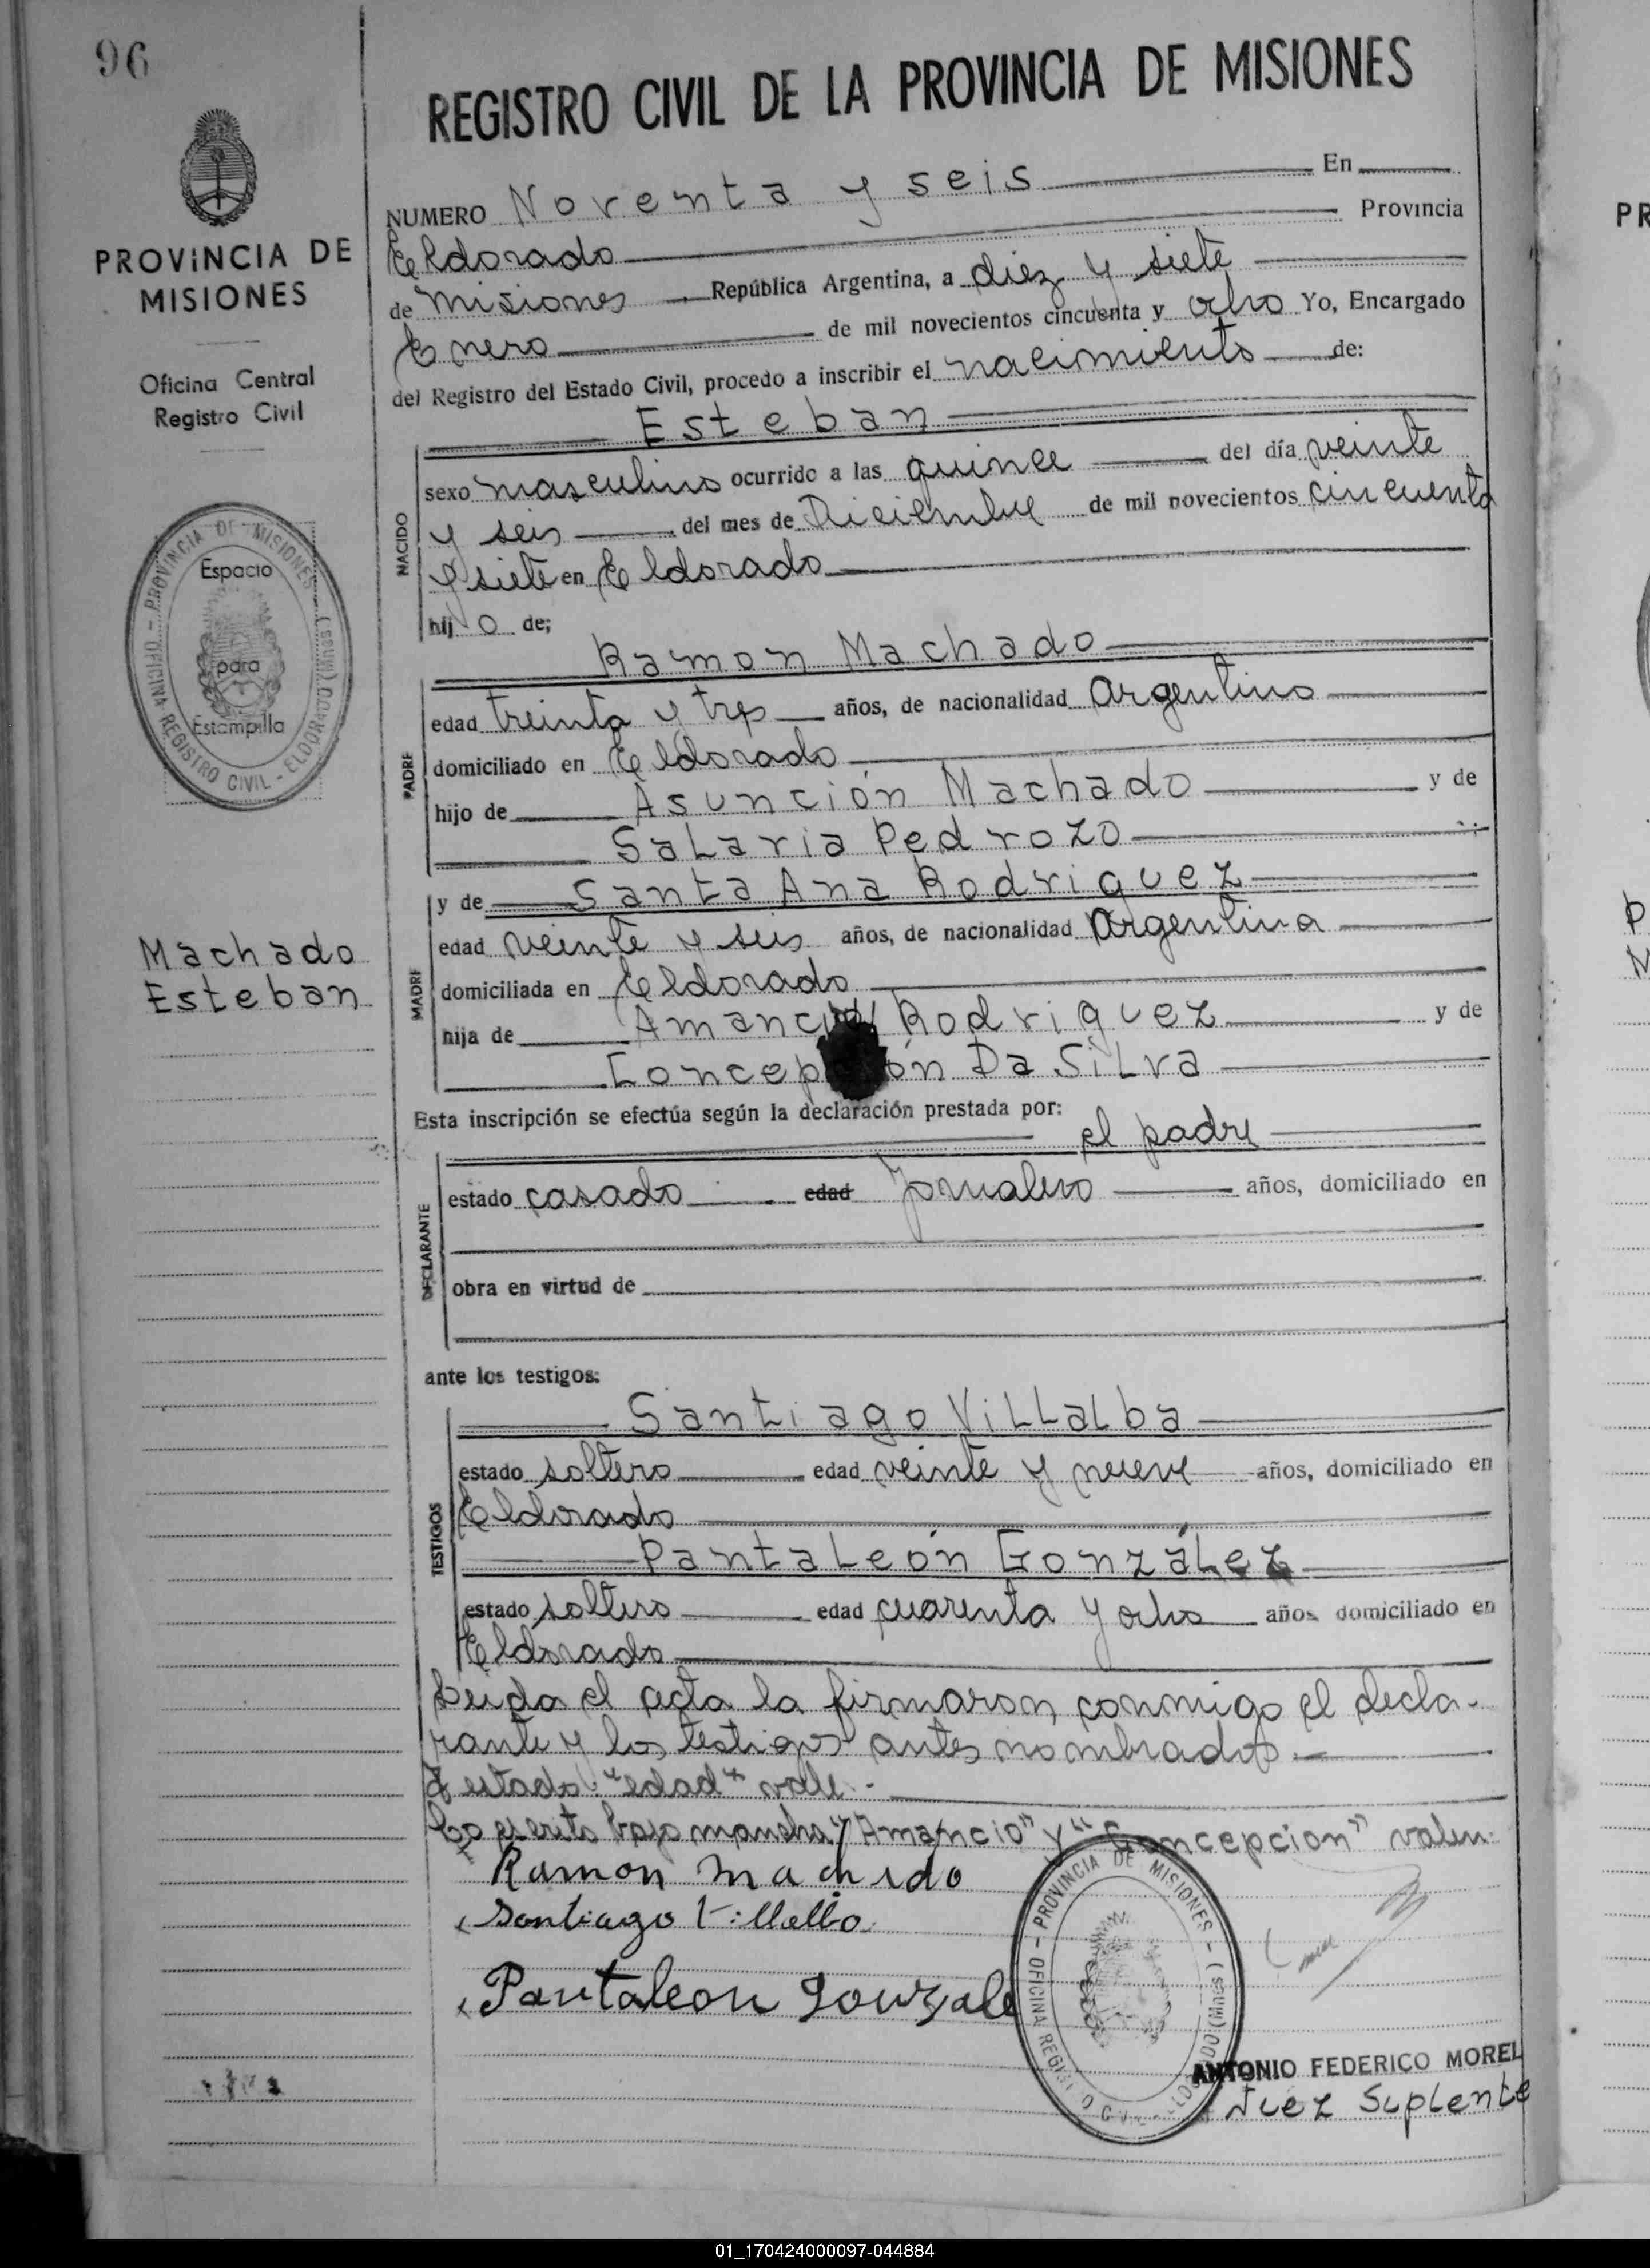 96
REGISTRO CIVIL DE LA PROVINCIA DE MISIONES
PROVINCIA DE
MISIONES
Oficina Central
Registro Civil
PROVINCIA DE MISIONES - ELDORADO (Mnes.) - OFICINA REGISTRO CIVIL -
Espacio
para
Estampilla
Machado
Esteban
NUMERO Noventa y seis En
Eldorado Provincia
de Misiones República Argentina, a diez y siete
Enero de mil novecientos cincuenta y ocho Yo, Encargado
del Registro del Estado Civil, procedo a inscribir el nacimiento de:
Esteban
NACIDO
sexo masculino ocurrido a las quince del día veinte
y seis del mes de Diciembre de mil novecientos cincuenta
y siete en Eldorado
hijo de;
Ramon Machado
PADRE
edad treinta y tres años, de nacionalidad Argentino
domiciliado en Eldorado
hijo de Asunción Machado y de
SaLaria Pedrozo
y de Santa Ana Rodriguez
MADRE
edad veinte y seis años, de nacionalidad Argentina
domiciliada en Eldorado
hija de Amancio Rodriguez y de
Concepción Da SiLva
Esta inscripción se efectúa según la declaración prestada por:
el padre
DECLARANTE
estado casado edad Jornalero años, domiciliado en
obra en virtud de
ante los testigos:
Santiago ViLLaLba
TESTIGOS
estado soltero edad veinte y nueve años, domiciliado en
Eldorado
PantaLeón GonzáLez
estado soltero edad cuarenta y ocho años domiciliado en
Eldorado
Leida el acta la firmaron conmigo el decla-
rante y los testigos antes nombrados.-
Testado: "edad" vale.-
Lo escrito bajo mancha "Amancio" y "Concepcion" valen.
Ramon Machado
Santiago Villalba
Pantaleon Gonzale
PROVINCIA DE MISIONES - ELDORADO (Mnes.) - OFICINA REGISTRO CIVIL -
ANTONIO FEDERICO MOREL
Juez SupLente
PR
01_170424000097-044884